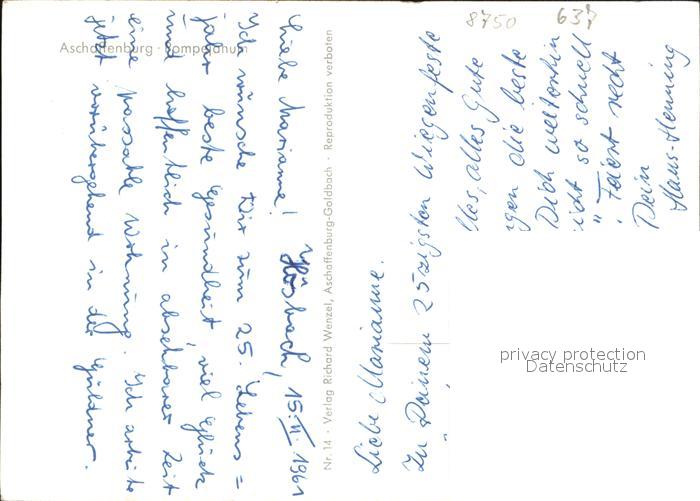 8750
637
Aschaffenburg - Pompejanum
Hösbach, 15.II.1961
Liebe Marianne!
Ich wünsche Dir zum 25. Lebens=
jahr beste Gesundheit, viel Glück
und hoffentlich in absehbarer Zeit
eine passable Wohnung. Ich arbeite
jetzt vorübergehend in der Güldner.
Nr. 14 · Verlag Richard Wenzel, Aschaffenburg-Goldbach · Reproduktion verboten
Liebe Marianne.
Zu Deinem 25zigsten Wiegenfeste
alles Gute
gen die beste
Dich weiterhin
icht so schnell
Feiert recht
Dein
Hans-Henning
privacy protection
Datenschutz